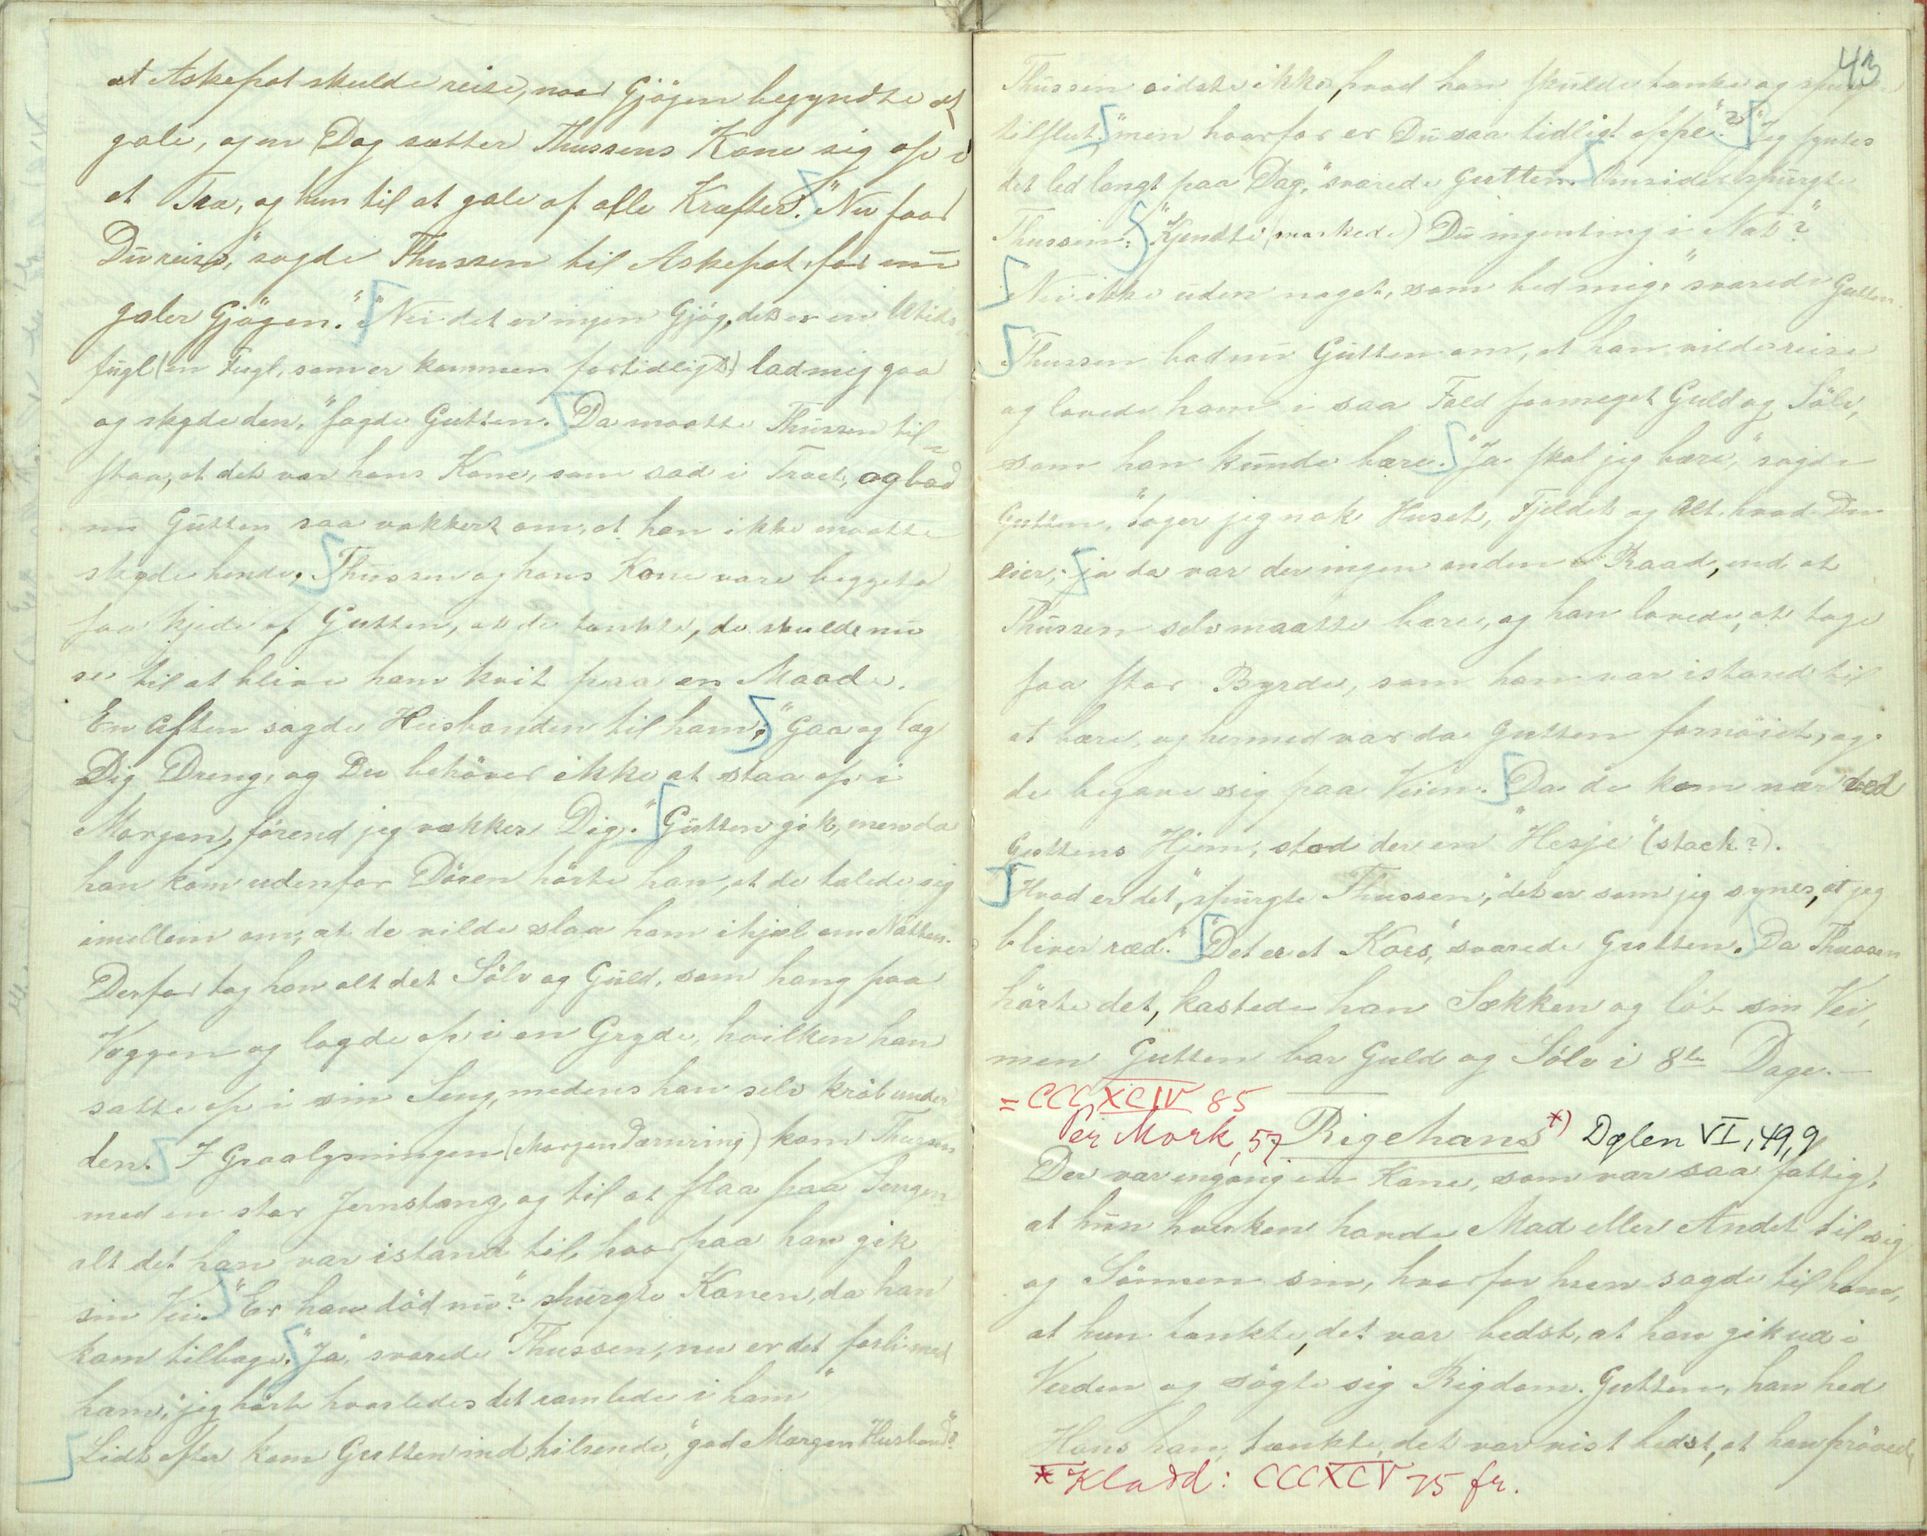 at Askepot skulde reise, naar Gjögen begyndte at
gale, og en Dag sætter Thussens Kone sig op i
et Træ, og hun til at gale af alle Kræfter. "Nu faar
Du reise," sagde Thussen til Askepot, for nu
galer Gjögen." "Nei det er ingen Gjög, det er en Utids
fugl (en Fugl, som er kommen fortidligt) lad mig gaa
og skyde den," sagde Gutten. Da maatte Thussen til-
staa, at det var hans Kone, som sad i Træet, og bad
nu Gutten saa vakkert om, at han ikke maatte
skyde hende. Thussen og hans Kone vare begge to
saa kjede af Gutten, at de tænkte, de skulde nu
se til at blive ham kvit paa en Maade.
En Aften sagde Husbonden til ham: "Gaa og læg
Dig Dreng, og Du behöver ikke at staa op i
Morgen, förend jeg vækker Dig." Gutten gik, men da
han kom udenfor Dören hörte han, at de talede sig
imellem om, at de vilde slaa ham ihjel om Natten.
Derfor tog han alt det Sölv og Guld, som hang paa
Væggen og lagde op i en Gryde, hvilken han
satte op i sin Seng, medens han selv kröb under
den. I Graalysningen (Morgendæmring) kom Thussen
med en stor Jernstang og til at slaa paa Sengen
alt det han var istand til, hvorpaa han gik
sin Vei. "Er han död nu?" spurgte Konen, da han
kom tilbage. "Ja" svarede Thussen, nu er det forbi med
ham, "jeg hörte hvorledes det ramlede i ham"
Lidt efter kom Gutten ind hilsende, "god Morgen Husbond"?
43
Thussen vidste ikke, hvad han skulde tænke og spurgte
tilslut, "men hvorfor er Du saa tidligt oppe"? "Jeg syntes
det led langt paa Dag," svarede Gutten. Omsider spurgte
Thussen: "Kjendte (mærkede) Du ingenting i Nat?"
"Nei ikke uden noget, som bed mig," svarede Gutten.
Thussen bad nu Gutten om, at han vilde reise
og lovede ham i saa Fald saa meget Guld og Sölv,
som han kunde bære. "Ja skal jeg bære," sagde
Gutten, "tager jeg nok Huset, Fjeldet og Alt hvad Du
eier," ja da var der ingen anden Raad, end at
Thussen selv maatte bære, og han lovede, at tage
saa stor Byrde, som han var istand til
at bære, og hermed var da Gutten fornöiet, og
de begave sig paa Veien. Da de kom nær ved
Guttens Hjem, stod der en "Hesje" (stack?).
"Hvad er det," spurgte Thussen, "det er som jeg synes, at jeg
bliver ræd." "Det er et Kors," svarede Gutten. Da Thussen
hörte det, kastede han Sækken og löb sin Vei,
men Gutten bar Guld og Sölv i 8te Dage. —
= CCCXCIV 85
Per Mork, 57 Rigehans *) Dølen VI, 49, 9
Der var engang en Kone, som var saa fattig,
at hun hverken havde Mad eller Andet til sig
og Sönnen sin, hvorfor hun sagde til ham,
at hun tænkte, det var bedst, at han gik ud i
Verden og sögte sig Rigdom. Gutten, han hed
Hans han, tænkte, det var vist bedst, at han prövede
* Kladd: CCCXCV 75 fr.